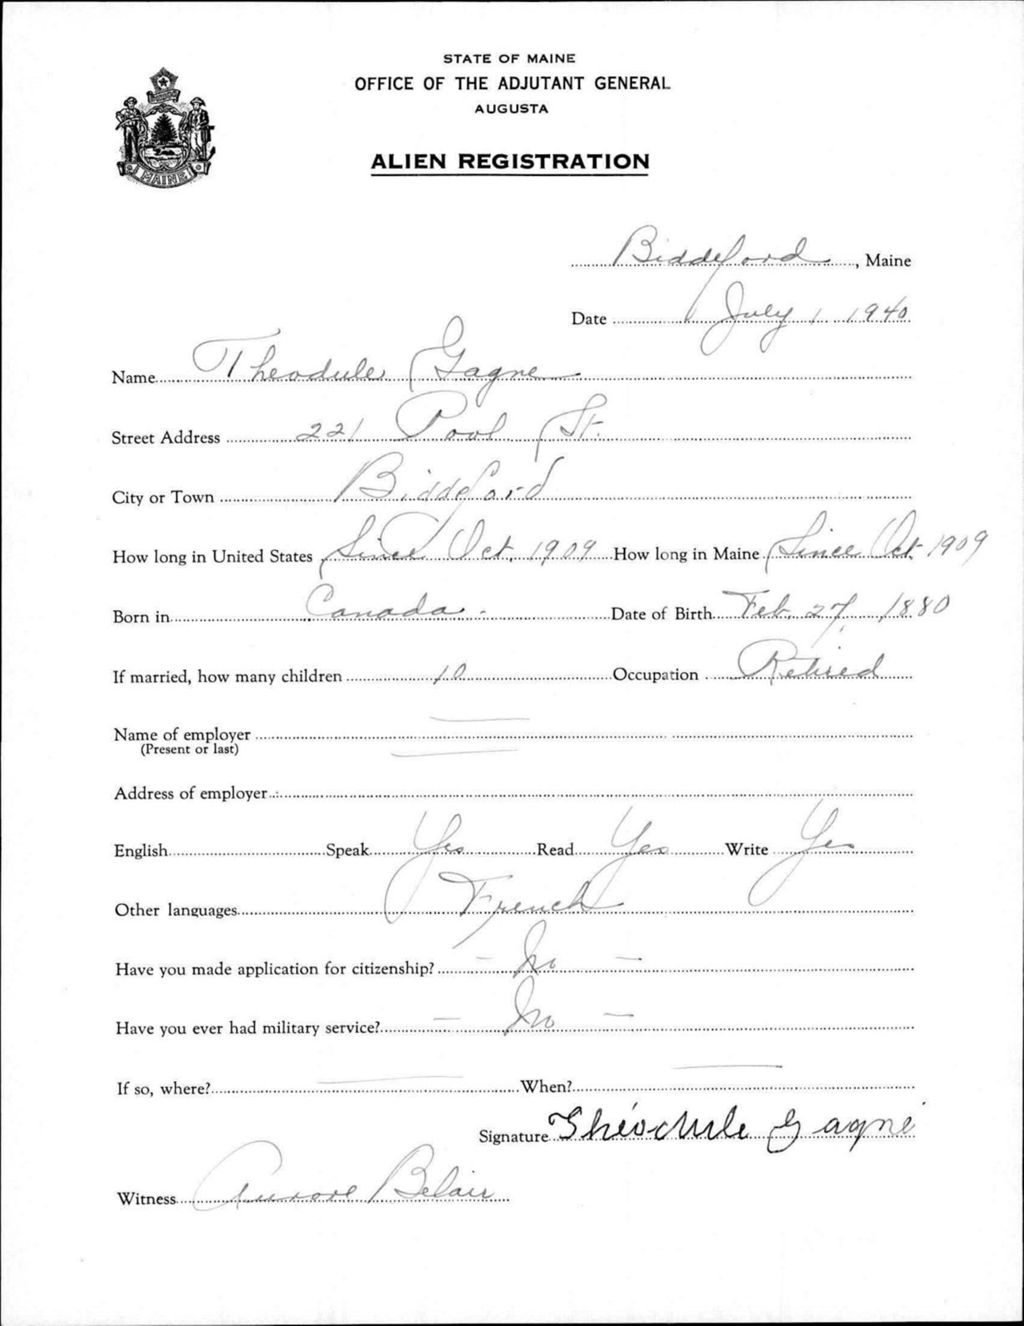 STATE OF MAINE
OFFICE OF THE ADJUTANT GENERAL
AUGUSTA
MAINE
ALIEN REGISTRATION
Biddeford, Maine
Date July 1, 1940
Name Theodule Gagne
Street Address 221 Pool St.
City or Town Biddeford
How long in United States Since Oct. 1909 How long in Maine Since Oct. 1909
Born in Canada - Date of Birth Feb. 27, 1880
If married, how many children 10 Occupation Retired
Name of employer
(Present or last)
Address of employer
English Speak Yes Read Yes Write Yes
Other languages French
Have you made application for citizenship? - No -
Have you ever had military service? - No -
If so, where? When?
Signature Théodule Gagné
Witness Aurore Belair